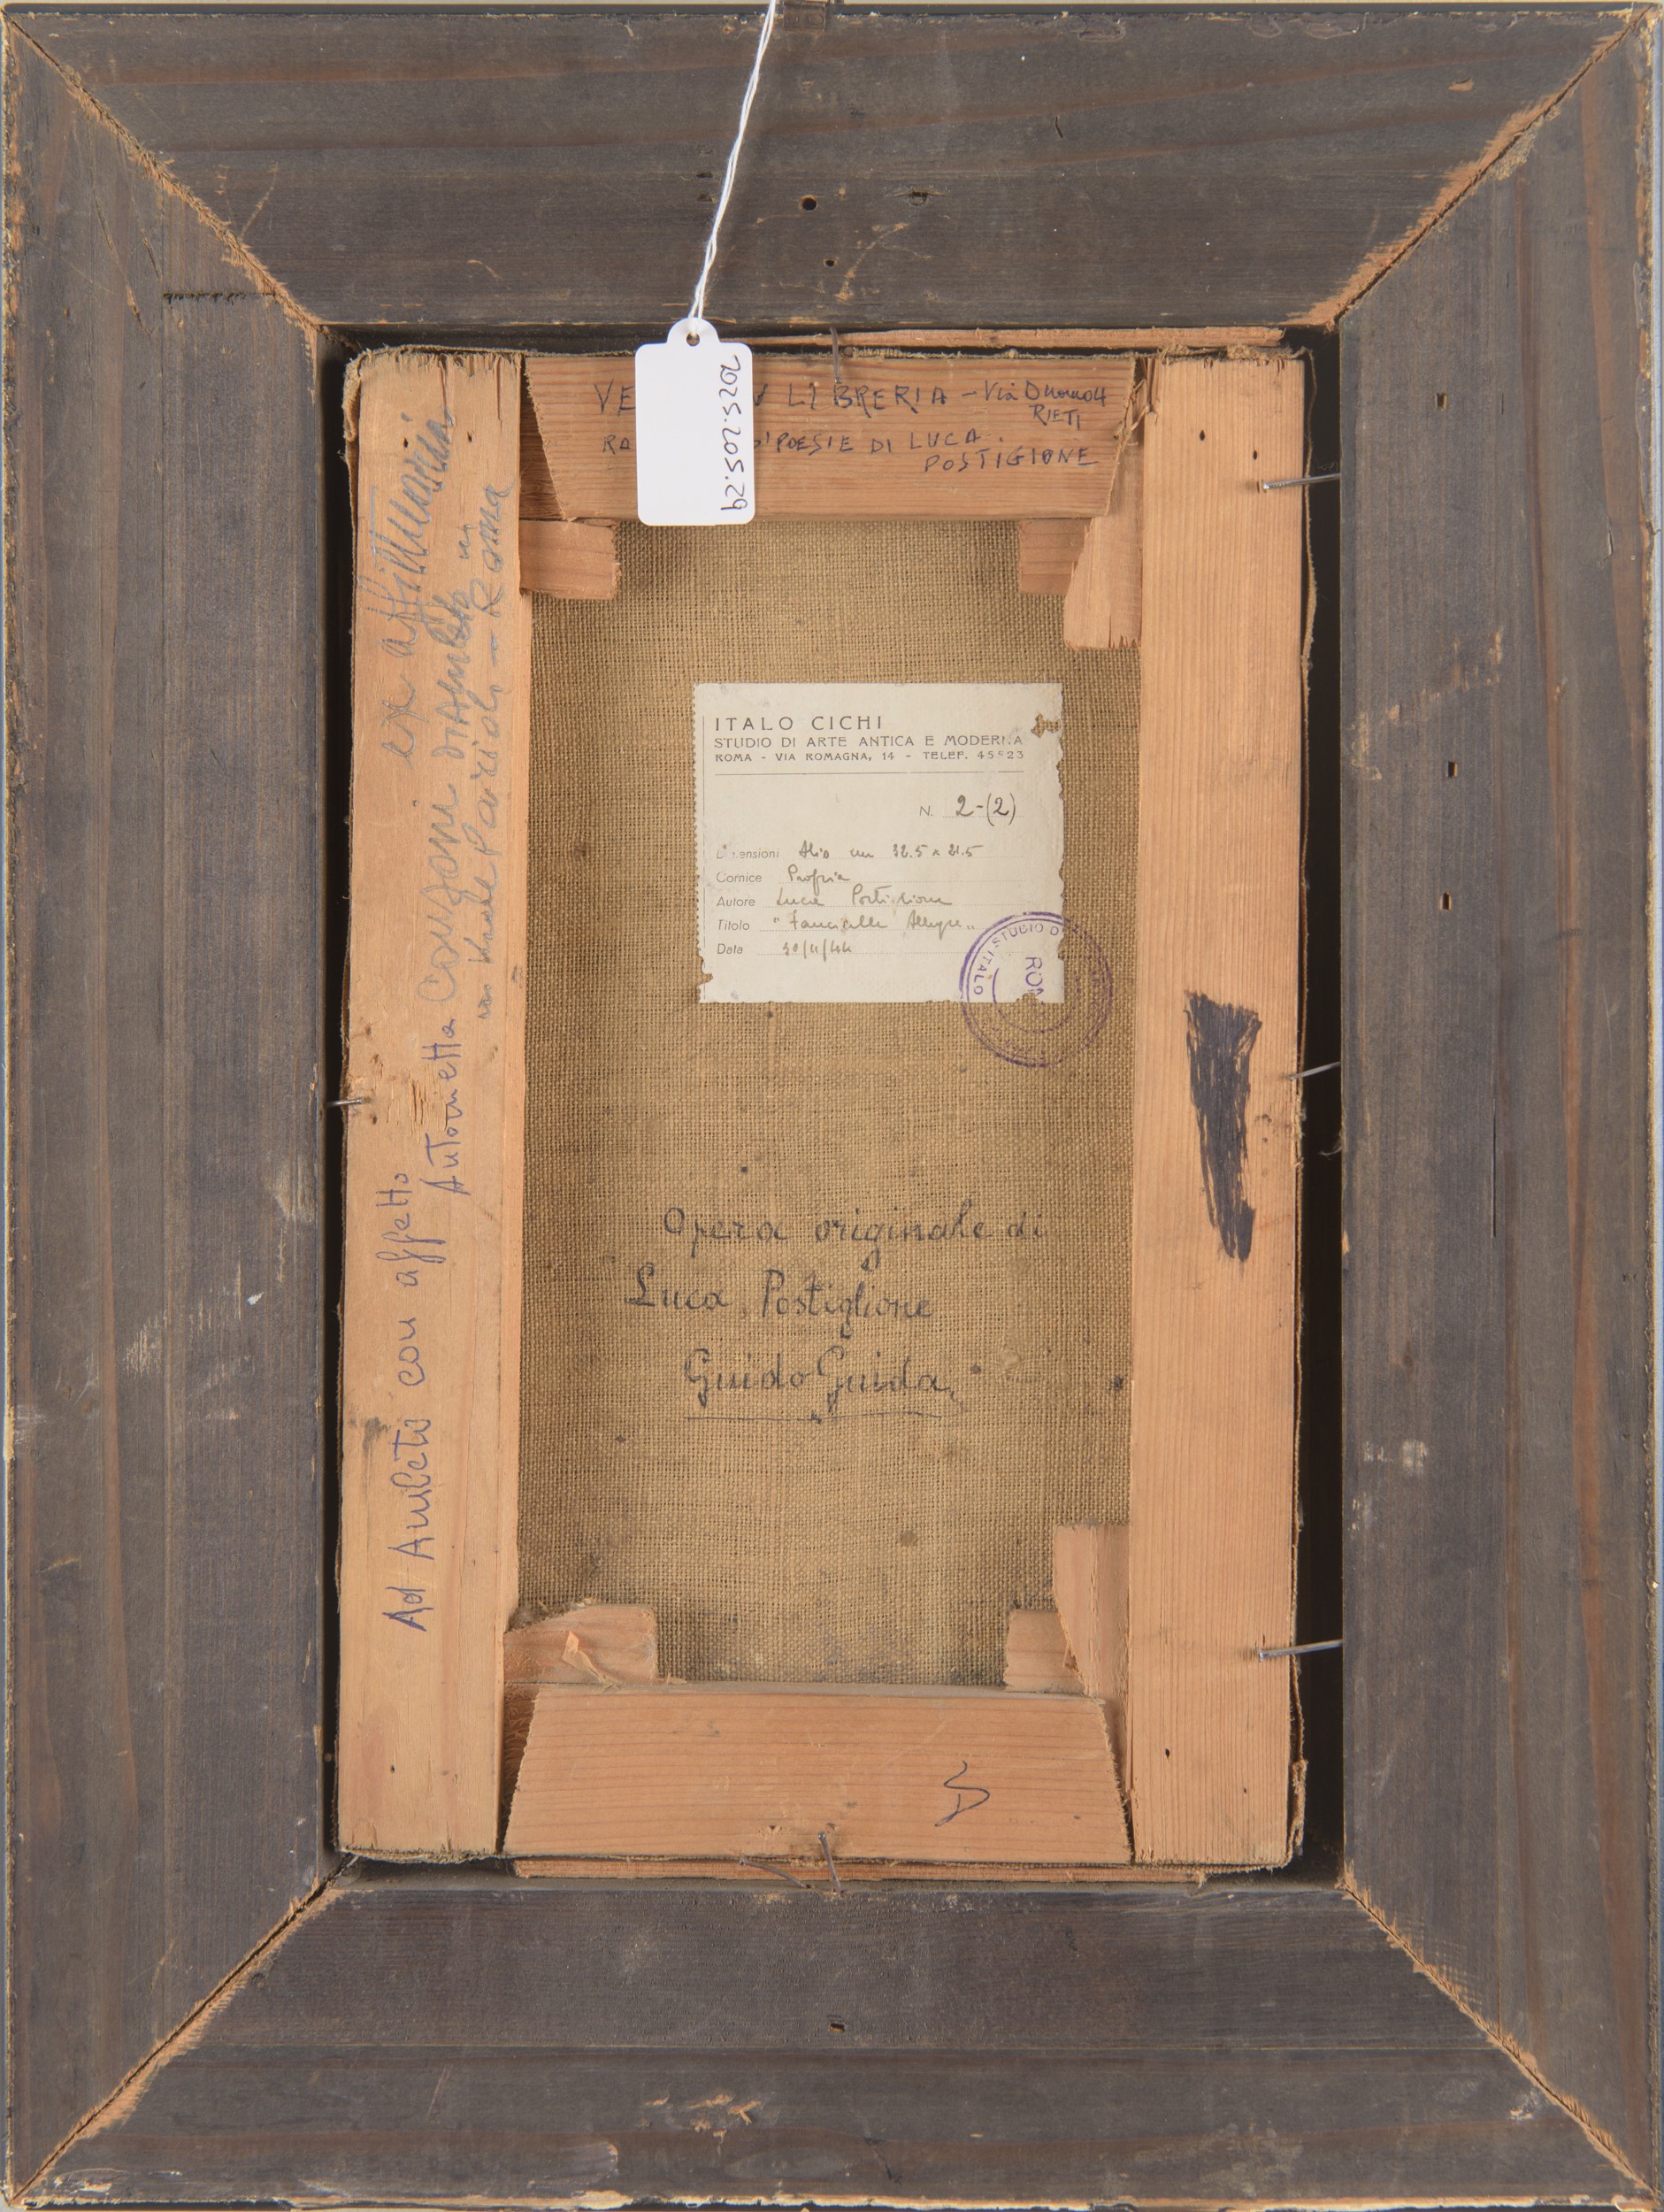 2025.205.29
VE LIBRERIA - Via Duomo 4
RIETI
RA POESIE DI LUCA
POSTIGIONE
ITALO CICHI
STUDIO DI ARTE ANTICA E MODERNA
ROMA - VIA ROMAGNA, 14 - TELEF. 45523
N. 2-(2)
Dimensioni Olio cm 32.5 x 21.5
Cornice Propria
Autore Luca Postiglione
Titolo "Fanciulla Allegra"
Data 30/11/44
STUDIO D
ITALO
ROM
Opera originale di
Luca Postiglione
Guido Guida
Ad Amleto con affetto
Antonietta
ex affittuaria
in Viale Parioli - Roma